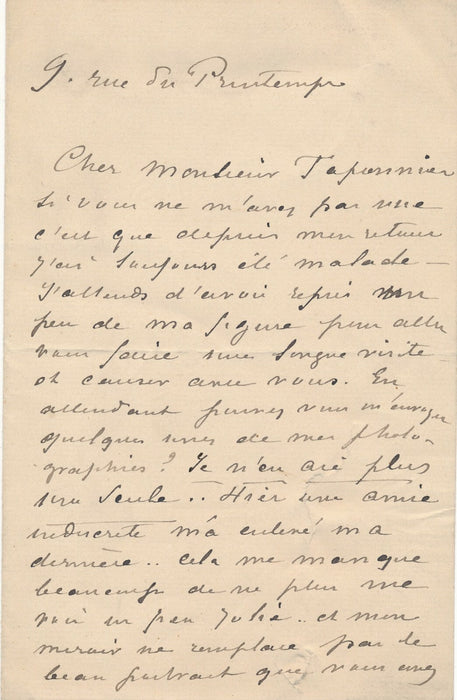 9. rue du Printemps
Cher Monsieur Taponnier
Si vous ne m'avez pas vue
c'est que depuis mon retour
j'ai toujours été malade —
J'attends d'avoir repris un
peu de ma figure pour aller
vous faire une longue visite
et causer avec vous. En
attendant pouvez vous m'envoyer
quelques unes de mes photo-
graphies? Je n'en ai plus
une seule .. Hier une amie
indiscrète m'a enlevé ma
dernière .. cela me manque
beaucoup de ne plus me
voir un peu jolie .. et mon
miroir ne remplace pas le
beau portrait que vous avez